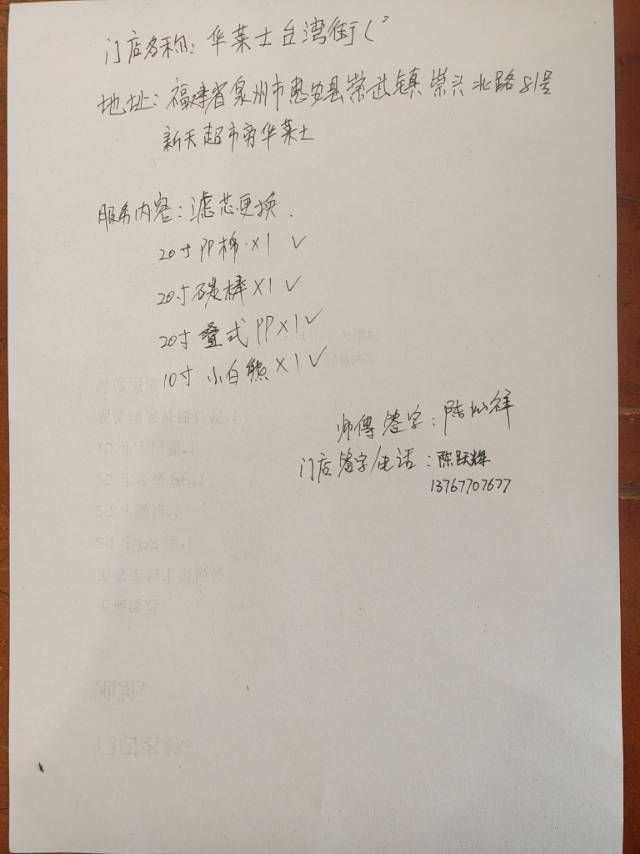 门店名称：华莱士台湾街(
地址：福建省泉州市惠安县崇武镇崇兴北路81号
新天超市旁华莱士
服务内容：滤芯更换.
20寸PP棉×1 ✓
20寸碳棒×1 ✓
20寸叠式PP×1 ✓
10寸小白熊×1 ✓
师傅签字：陈 祥
门店签字电话：陈跃辉
13767707677